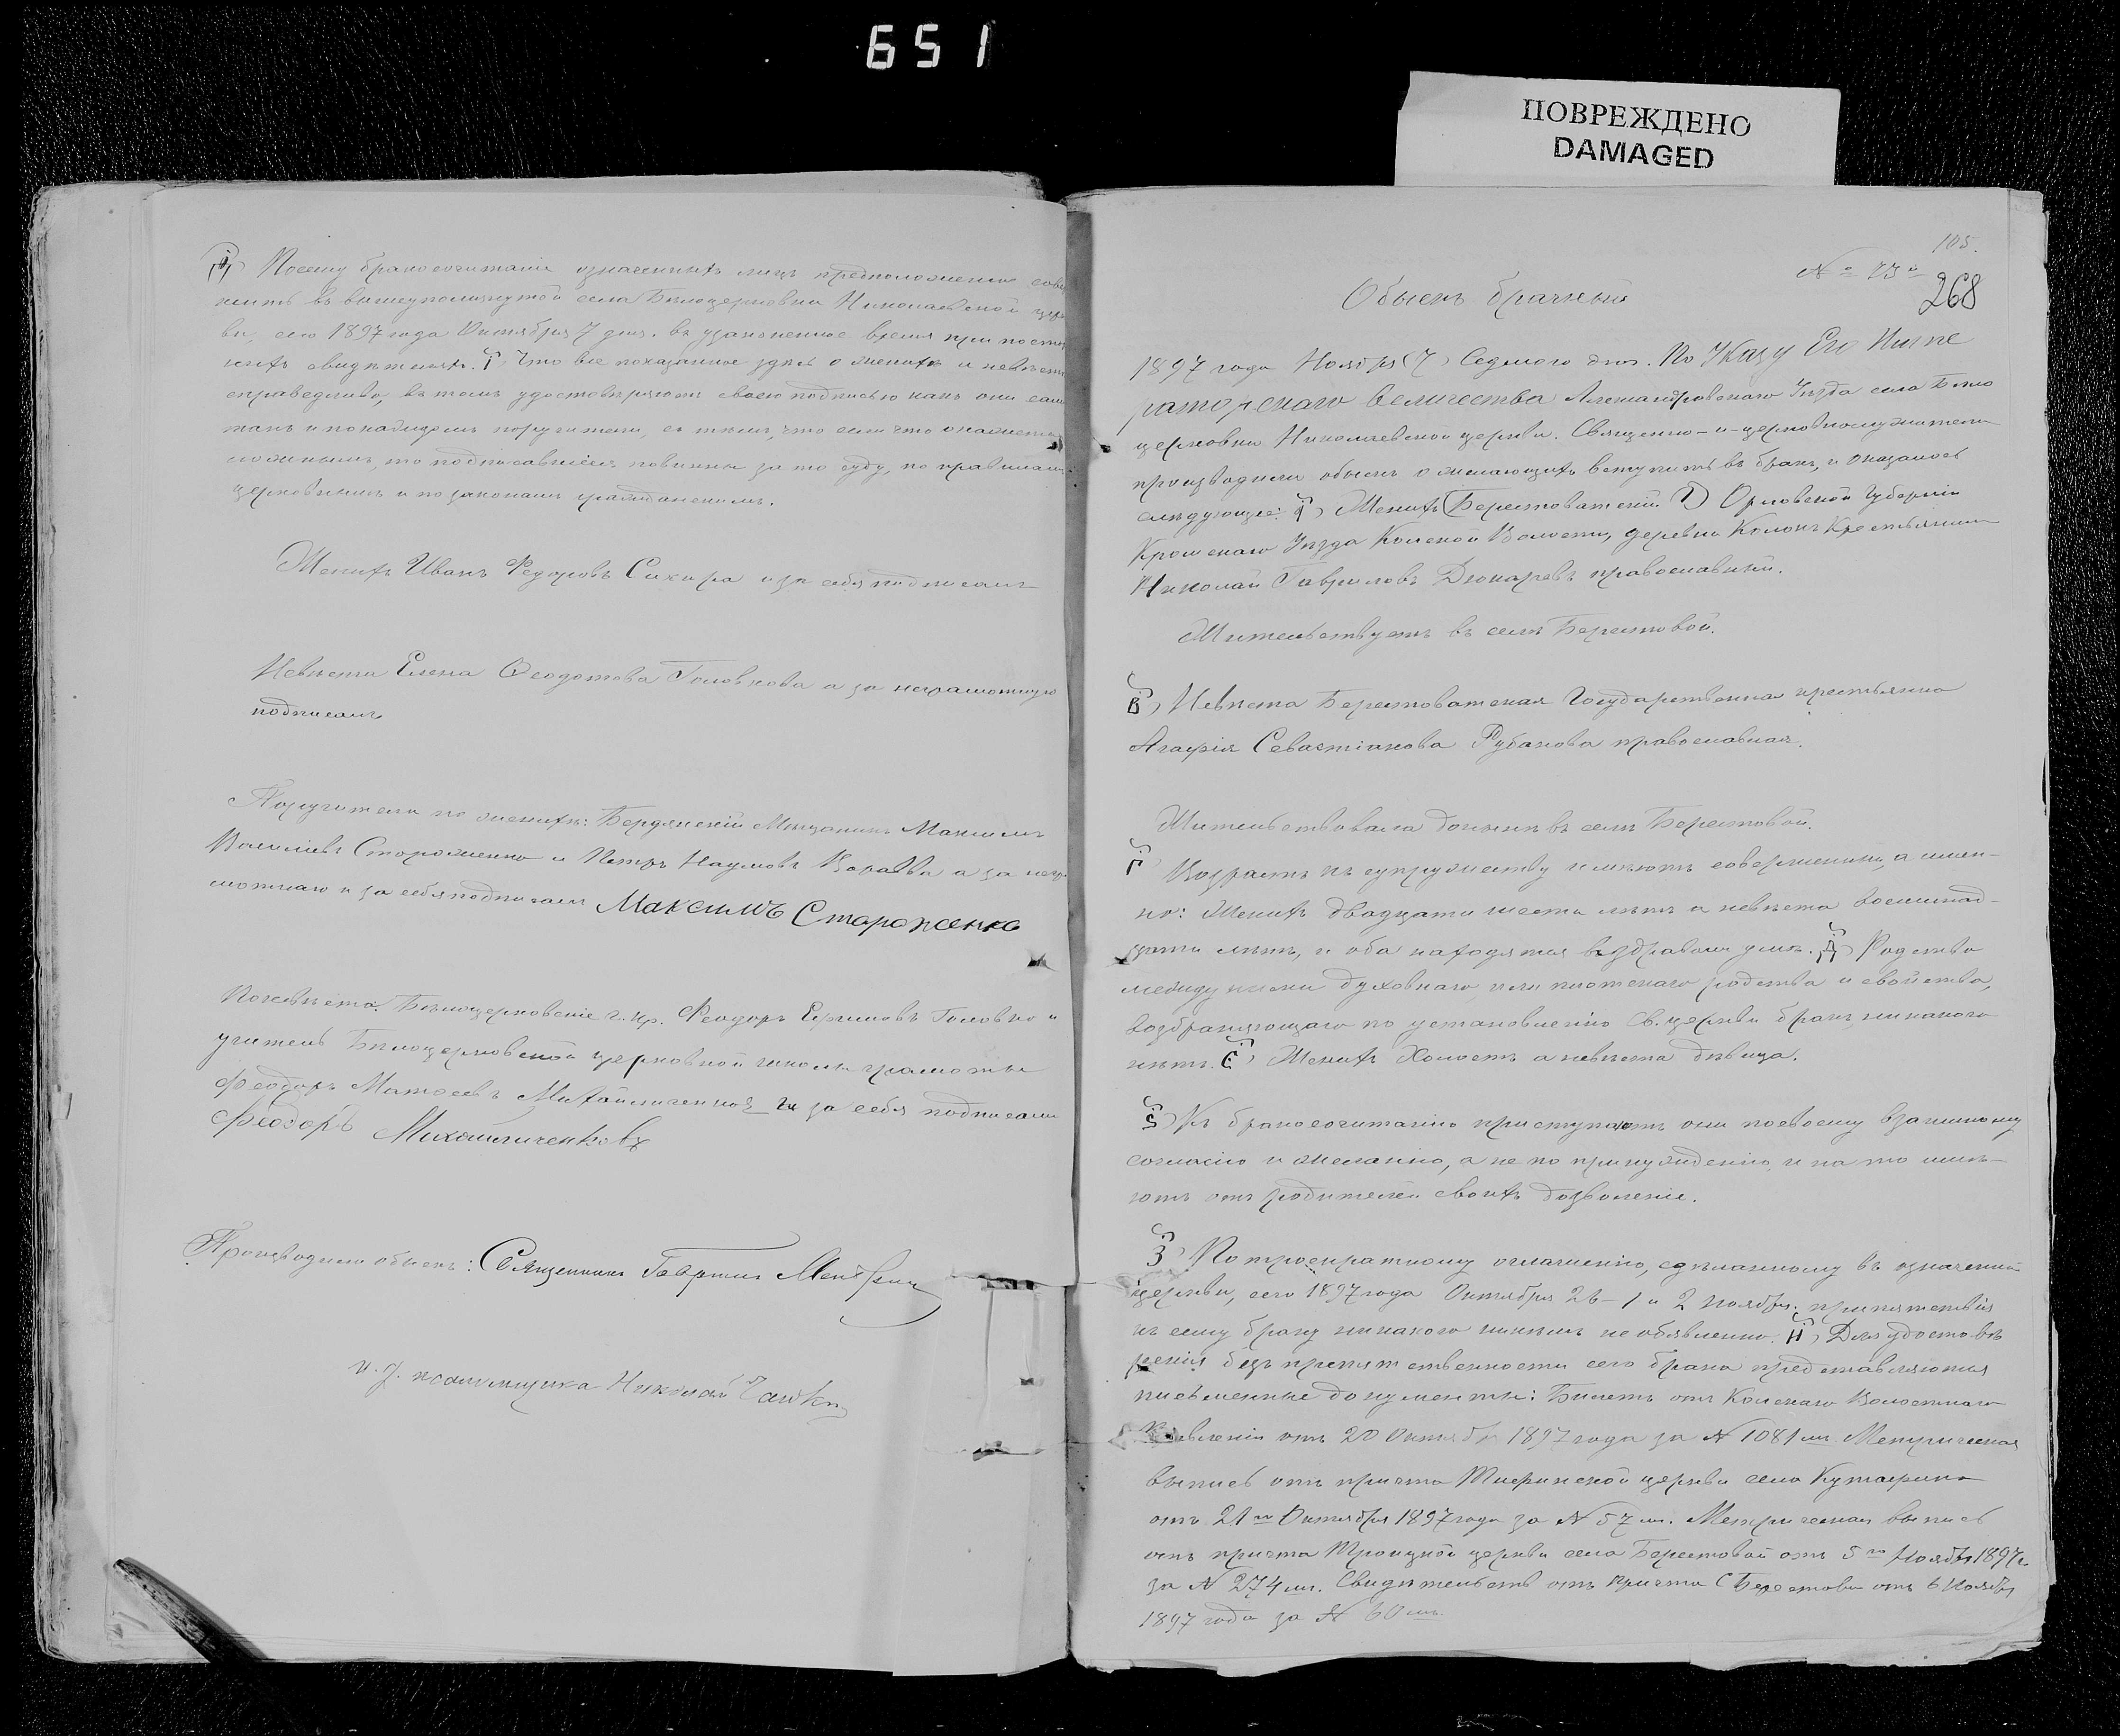 651
ПОВРЕЖДЕНО
DAMAGED
Посему бракосочетаніе означенныхъ лицъ предположено совер
шить въ вышеупомянутой села Бѣлоцерковки Николаевской церк
ви, сего 1897 года Октября 7 дня. въ узаконенное время при посто
нихъ свидѣтеляхъ. І Что все показанное здѣсь о женихѣ и невѣстѣ
справедливо, въ томъ удостовѣряютъ своею подписью какъ они сами
такъ и по каждомъ поручители, съ тѣмъ, что если что окажется
ложнымъ, то подписавшіеся повинны за то суду, по правиламъ
церковнымъ и по законамъ гражданскимъ.
Женихъ Иванъ Федоровъ Сихира и за себя подписалъ
Невѣста Елена Ѳеодотова Головкова а за неграмотную
подписалъ
Поручители по женихѣ: Бердянскій Мѣщанинъ Максимъ
Василіевъ Стороженко и Петръ Наумовъ а за негр
мотнаго и за себя подписалъ Максимъ Стороженко
По невѣстѣ. Бѣлоцерковскіе г. кр. Феодоръ Головко и
учитель Бѣлоцерковской церковной школы грамоты
Феодоръ Матѳеевъ Михайличенковъ и за себя подписали
Феодоръ Михайличенковъ
Производили обыскъ: Священникъ Гавріилъ
и. д. псаломщика Николай
105.
№ 73й
268
Обыскъ брачный
1897 года Ноября (7) Седьмого дня. По Указу Его Импе
раторскаго Величества Александровскаго Уѣзда села Бѣло
церковки Николаевской церкви. Священно-и-церковнослужители
производили обыскъ о желающихъ вступить въ бракъ, и оказалось
слѣдующее: 1) Женихъ (Берестоватскій 1) Орловской Губерніи
Кромскаго Уѣзда Волости, деревни Крестьянинъ
Николай Гавриловъ Дюкаревъ православный.
Жительствуетъ въ селѣ Берестовой.
В) Невѣста Берестоватская Государственна крестьянка
Агафія Севастіанова Рубанова православная.
Жительствовала донынѣ въ селѣ Берестовой.
Г Возрастъ къ супружеству имѣютъ совершенный, а имен-
но: Женихъ двадцати шести лѣтъ а невѣста восемнад-
цати лѣтъ, и оба находятся въ здравомъ умѣ. Д) Родства
между ними духовнаго, или плотскаго родства и свойства,
возбраняющаго по установленію св. церкви бракъ никакого
нѣтъ. Є) Женихъ Холостъ а невѣста дѣвица.
Ѕ) Къ бракосочетанію приступаютъ они по своему взаимному
согласію и желанію, а не по принужденію, и на то имѣ-
ютъ отъ родителей своихъ дозволеніе.
З) По троекратному оглашенію, сдѣланному въ означенной
церкви, сего 1897 года Октября 26-1 и 2 Ноября. препятствія
къ сему браку никакого никѣмъ не объявлено. И) Для удостовѣ
ренія безпрепятственности сего брака представляются
письменные документы: Билетъ отъ Волостнаго
Правленія отъ 20 Октября 1897 года за № 1081 мъ. Метрическая
выпись отъ причта церкви села
отъ 21го Октября 1897 года за № 57 мъ. Метрическая выпись
отъ причта Троицкой церкви села Берестовой отъ 5го Ноября 1897 г.
за № 274 мъ. Свидѣтельство отъ причта С Берестовой отъ 6 Ноября
1897 года за № 60 мъ.